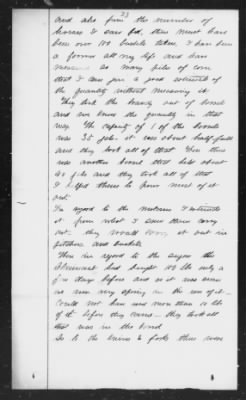 23
and also from the number of
horses & ears fed, there must have
been over 100 bushels taken. I have been
a farmer all my life and have
so many piles of corn
that I can give a good estimate of
the quantity without measuring it.
They took the brandy out of barrel
and we knew the quantity in that
way. The capacity of 1 of the barrels
was 35 gals. it was about half full
and they took all of that. Then there
was another barrel that held about
40 gals and they took all of that
& I helped them to pour most of it
out.
In regard to the molasses I estimate
it from what I seen them carry
out. they would carry it out in
pitchers and buckets.
Then in regard to the sugar the
Claimant had bought 100 lbs only a
few days before and as it was scarce
we were very sparing in the use of it.
could not have used more than 10 lbs
of it before they came. they took all
that was in the barrel
As to the knives & forks there were